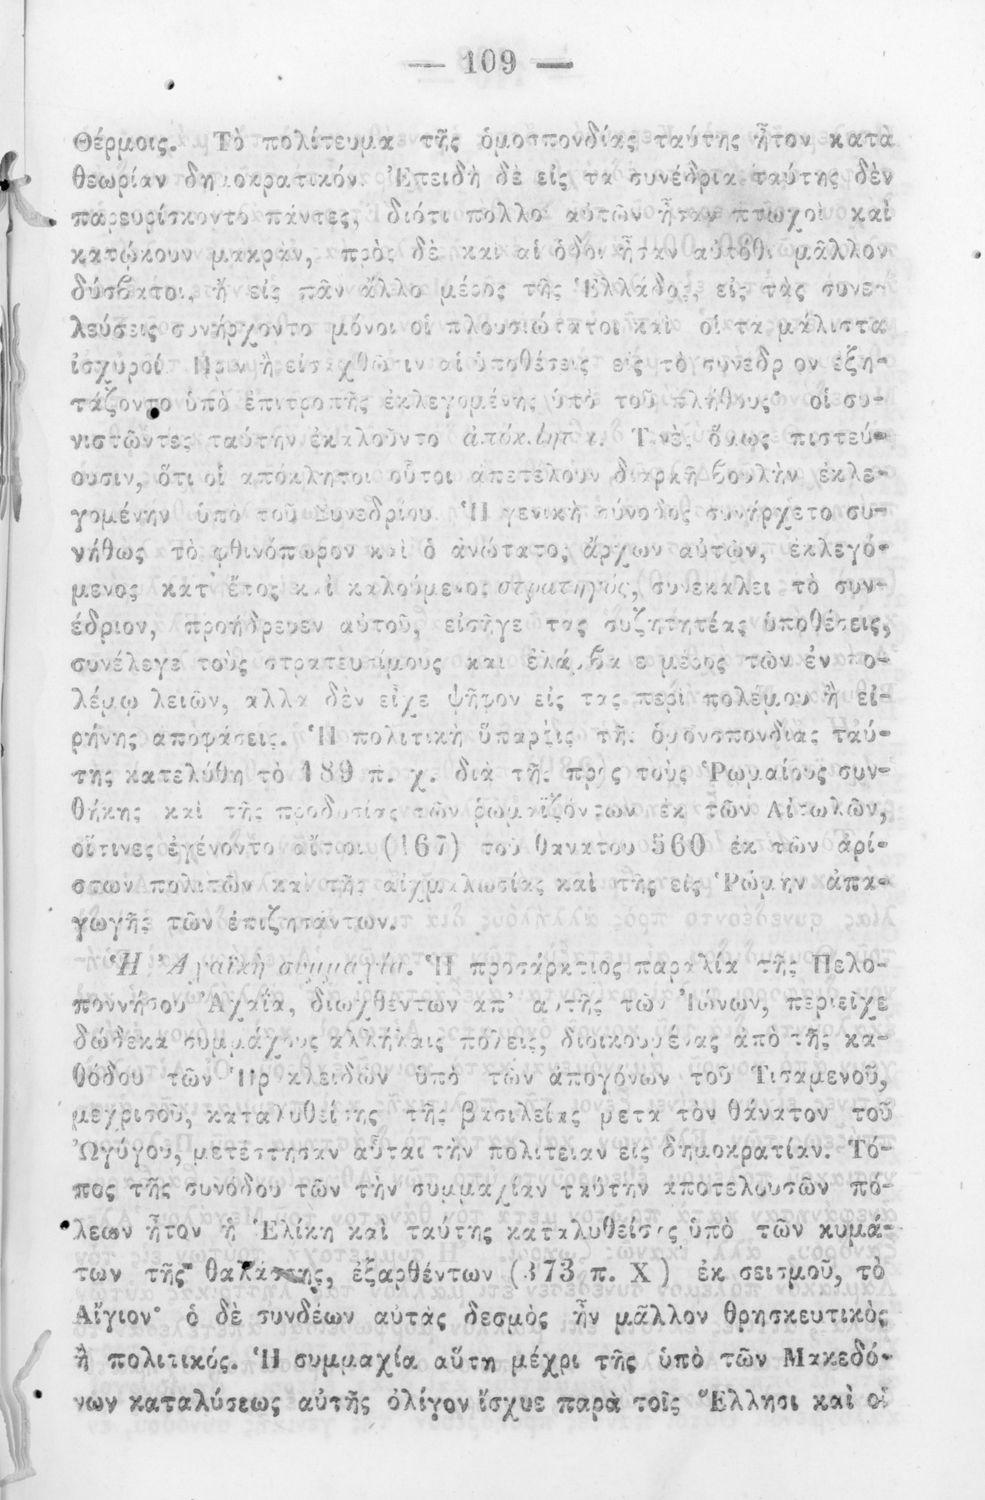 — 109 —
Θέρμοις. Τὸ πολίτευμα τῆς ὁμοσπονδίας ταύτης ἦτον κατὰ
θεωρίαν δημοκρατικόν. Ἐπειδὴ δὲ εἰς τὰ συνέδρια ταύτης δὲν
παρευρίσκοντο πάντες, διότι πολλοὶ αὐτῶν ἦσαν πτωχοὶ καὶ
κατῴκουν μακρὰν, πρὸς δὲ καὶ αἱ ὁδοὶ ἦσαν αὐτόθι μᾶλλον
δύσβατοι, ἢ εἰς πᾶν ἄλλο μέρος τῆς Ἑλλάδος, εἰς τὰς συνε-
λεύσεις συνήρχοντο μόνοι οἱ πλουσιώτατοι καὶ οἱ τὰ μάλιστα
ἰσχυροί. Πρὶν ἢ εἰσαχθῶσιν αἱ ὑποθέσεις εἰς τὸ συνέδριον ἐξη-
τάζοντο ὑπὸ ἐπιτροπῆς ἐκλεγομένης ὑπὸ τοῦ πλήθους· οἱ συ-
νιστῶντες ταύτην ἐκαλοῦντο ἀπόκλητοι. Τινὲς ὅμως πιστεύ-
ουσιν, ὅτι οἱ ἀπόκλητοι οὗτοι ἀπετέλουν διαρκῆ βουλὴν ἐκλε-
γομένην ὑπὸ τοῦ Συνεδρίου. Ἡ γενικὴ σύνοδος συνήρχετο συ-
νήθως τὸ φθινόπωρον καὶ ὁ ἀνώτατος ἄρχων αὐτῶν, ἐκλεγό-
μενος κατ' ἔτος καὶ καλούμενος στρατηγὸς, συνεκάλει τὸ συν-
έδριον, προήδρευεν αὐτοῦ, εἰσῆγε τὰς συζητητέας ὑποθέσεις,
συνέλεγε τοὺς στρατευσίμους καὶ ἐλάμβανε μέρος τῶν ἐν πο-
λέμῳ λειῶν, ἀλλὰ δὲν εἶχε ψῆφον εἰς τὰς περὶ πολέμου ἢ εἰ-
ρήνης ἀποφάσεις. Ἡ πολιτικὴ ὕπαρξις τῆς ὁμονσπονδίας ταύ-
της κατελύθη τὸ 189 π. χ. διὰ τῆς πρὸς τοὺς Ῥωμαίους συν-
θήκης καὶ τῆς προδοσίας τῶν ῥωμαϊζόντων ἐκ τῶν Αἰτωλῶν,
οἵτινες ἐγένοντο αἴτιοι (167) τοῦ θανάτου 560 ἐκ τῶν ἀρί-
στων πολιτῶν καὶ τῆς αἰχμαλωσίας καὶ τῆς εἰς Ῥώμην ἀπα-
γωγῆς τῶν ἐπιζησάντων.
Ἡ Ἀχαϊκὴ συμμαχία. Ἡ προσάρκτιος παραλία τῆς Πελο-
ποννήσου Ἀχαΐα, διωχθέντων ἀπ' αὐτῆς τῶν Ἰώνων, περιεῖχε
δώδεκα συμμάχους ἀλλήλαις πόλεις, διοικουμένας ἀπὸ τῆς κα-
θόδου τῶν Ἡρακλειδῶν ὑπὸ τῶν ἀπογόνων τοῦ Τισαμενοῦ,
μεχρισοῦ, καταλυθείσης τῆς βασιλείας μετὰ τὸν θάνατον τοῦ
Ὠγύγου, μετέστησαν αὗται τὴν πολιτείαν εἰς δημοκρατίαν. Τό-
πος τῆς συνόδου τῶν τὴν συμμαχίαν ταύτην ἀποτελουσῶν πό-
λεων ἦτον ἡ Ἑλίκη καὶ ταύτης καταλυθείσης ὑπὸ τῶν κυμά-
των τῆς θαλάσσης, ἐξαρθέντων (373 π. Χ) ἐκ σεισμοῦ, τὸ
Αἴγιον· ὁ δὲ συνδέων αὐτὰς δεσμὸς ἦν μᾶλλον θρησκευτικὸς
ἢ πολιτικός. Ἡ συμμαχία αὕτη μέχρι τῆς ὑπὸ τῶν Μακεδό-
νων καταλύσεως αὐτῆς ὀλίγον ἴσχυε παρὰ τοῖς Ἕλλησι καὶ οἱ